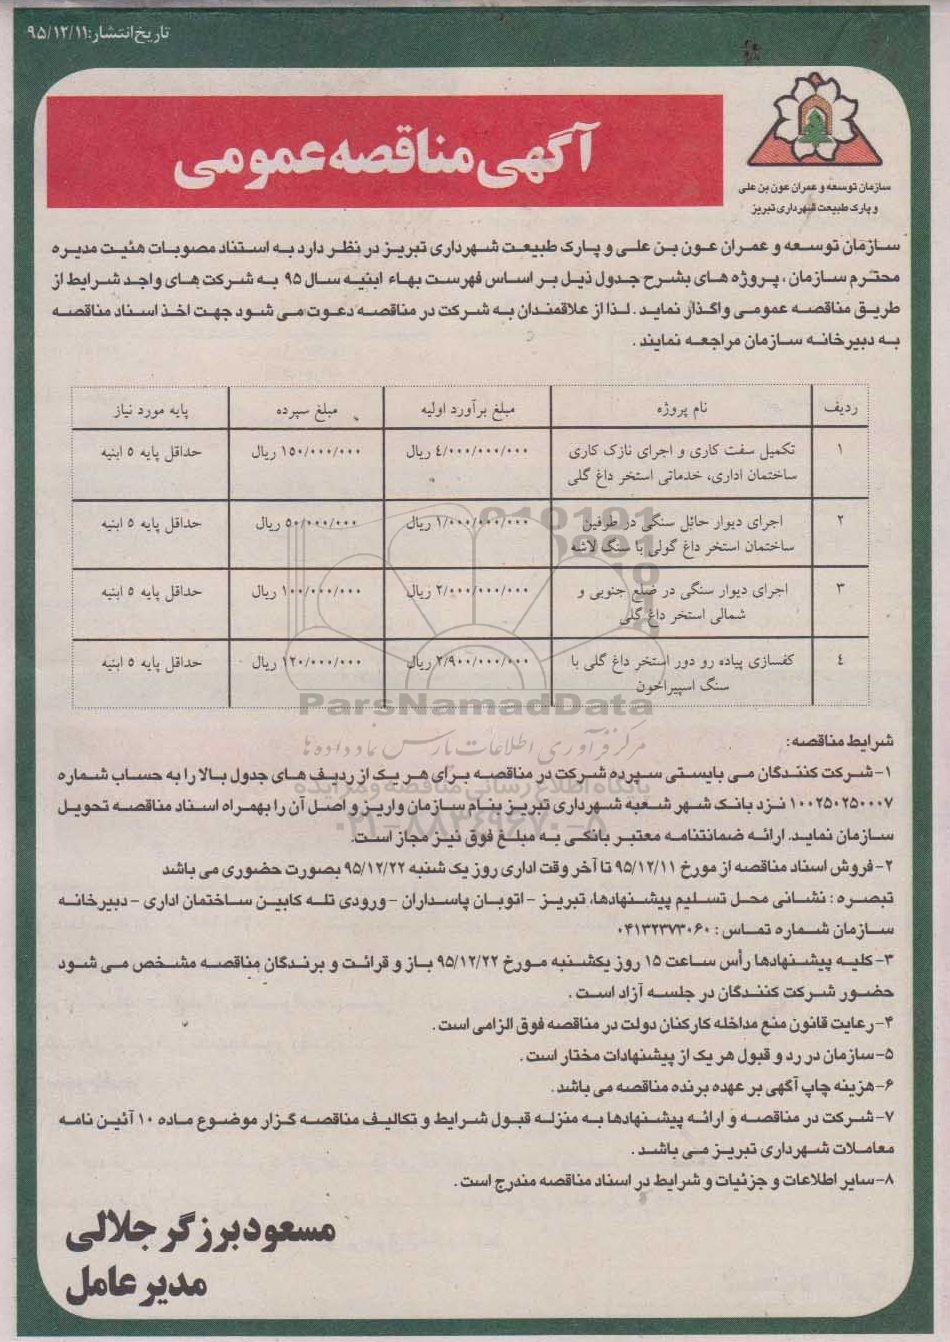 تاریخ انتشار: ۹۵/۱۲/۱۱
آگهی مناقصه عمومی
سازمان توسعه و عمران عون بن علی
و پارک طبیعت شهرداری تبریز
سازمان توسعه و عمران عون بن علی و پارک طبیعت شهرداری تبریز در نظر دارد به استناد مصوبات هئیت مدیره
محترم سازمان ، پروژه های بشرح جدول ذیل بر اساس فهرست بهاء ابنیه سال ۹۵ به شرکت های واجد شرایط از
طریق مناقصه عمومی واگذار نماید . لذا از علاقمندان به شرکت در مناقصه دعوت می شود جهت اخذ اسناد مناقصه
به دبیرخانه سازمان مراجعه نمایند .
ردیف نام پروژه مبلغ برآورد اولیه مبلغ سپرده پایه مورد نیاز
۱ تکمیل سفت کاری و اجرای نازک کاری ۴/۰۰۰/۰۰۰/۰۰۰ ریال ۱۵۰/۰۰۰/۰۰۰ ریال حداقل پایه ۵ ابنیه
ساختمان اداری، خدماتی استخر داغ گلی
۲ اجرای دیوار حائل سنگی در طرفین ۱/۰۰۰/۰۰۰/۰۰۰ ریال ۵۰/۰۰۰/۰۰۰ ریال حداقل پایه ۵ ابنیه
ساختمان استخر داغ گولی با سنگ لاشه
۳ اجرای دیوار سنگی در ضلع جنوبی و ۲/۰۰۰/۰۰۰/۰۰۰ ریال ۱۰۰/۰۰۰/۰۰۰ ریال حداقل پایه ۵ ابنیه
شمالی استخر داغ گلی
۴ کفسازی پیاده رو دور استخر داغ گلی با ۲/۹۰۰/۰۰۰/۰۰۰ ریال ۱۲۰/۰۰۰/۰۰۰ ریال حداقل پایه ۵ ابنیه
سنگ اسپیراخون
ParsNamadData
مرکز فرآوری اطلاعات پارس نماد داده ها
پایگاه اطلاع رسانی مناقصه و مزایده
۰۲۱-۸۸۳۴۹۶۷۰-۵
شرایط مناقصه:
۱-شرکت کنندگان می بایستی سپرده شرکت در مناقصه برای هر یک از ردیف های جدول بالا را به حساب شماره
۱۰۰۲۵۰۲۵۰۰۰۷ نزد بانک شهر شعبه شهرداری تبریز بنام سازمان واریز و اصل آن را بهمراه اسناد مناقصه تحویل
سازمان نماید. ارائه ضمانتنامه معتبر بانکی به مبلغ فوق نیز مجاز است.
۲-فروش اسناد مناقصه از مورخ ۹۵/۱۲/۱۱ تا آخر وقت اداری روز یک شنبه ۹۵/۱۲/۲۲ بصورت حضوری می باشد
تبصره : نشانی محل تسلیم پیشنهادها، تبریز - اتوبان پاسداران -ورودی تله کابین ساختمان اداری -دبیرخانه
سازمان شماره تماس : ۰۴۱۳۲۳۷۳۰۶۰
۳-کلیه پیشنهادها رأس ساعت ۱۵ روز یکشنبه مورخ ۹۵/۱۲/۲۲ باز و قرائت و برندگان مناقصه مشخص می شود
حضور شرکت کنندگان در جلسه آزاد است .
۴-رعایت قانون منع مداخله کارکنان دولت در مناقصه فوق الزامی است .
۵-سازمان در رد و قبول هر یک از پیشنهادات مختار است .
۶-هزینه چاپ آگهی بر عهده برنده مناقصه می باشد .
۷-شرکت در مناقصه و ارائه پیشنهادها به منزله قبول شرایط و تکالیف مناقصه گزار موضوع ماده ۱۰ آئین نامه
معاملات شهرداری تبریز می باشد .
۸-سایر اطلاعات و جزئیات و شرایط در اسناد مناقصه مندرج است .
مسعود برزگر جلالی
مدیر عامل